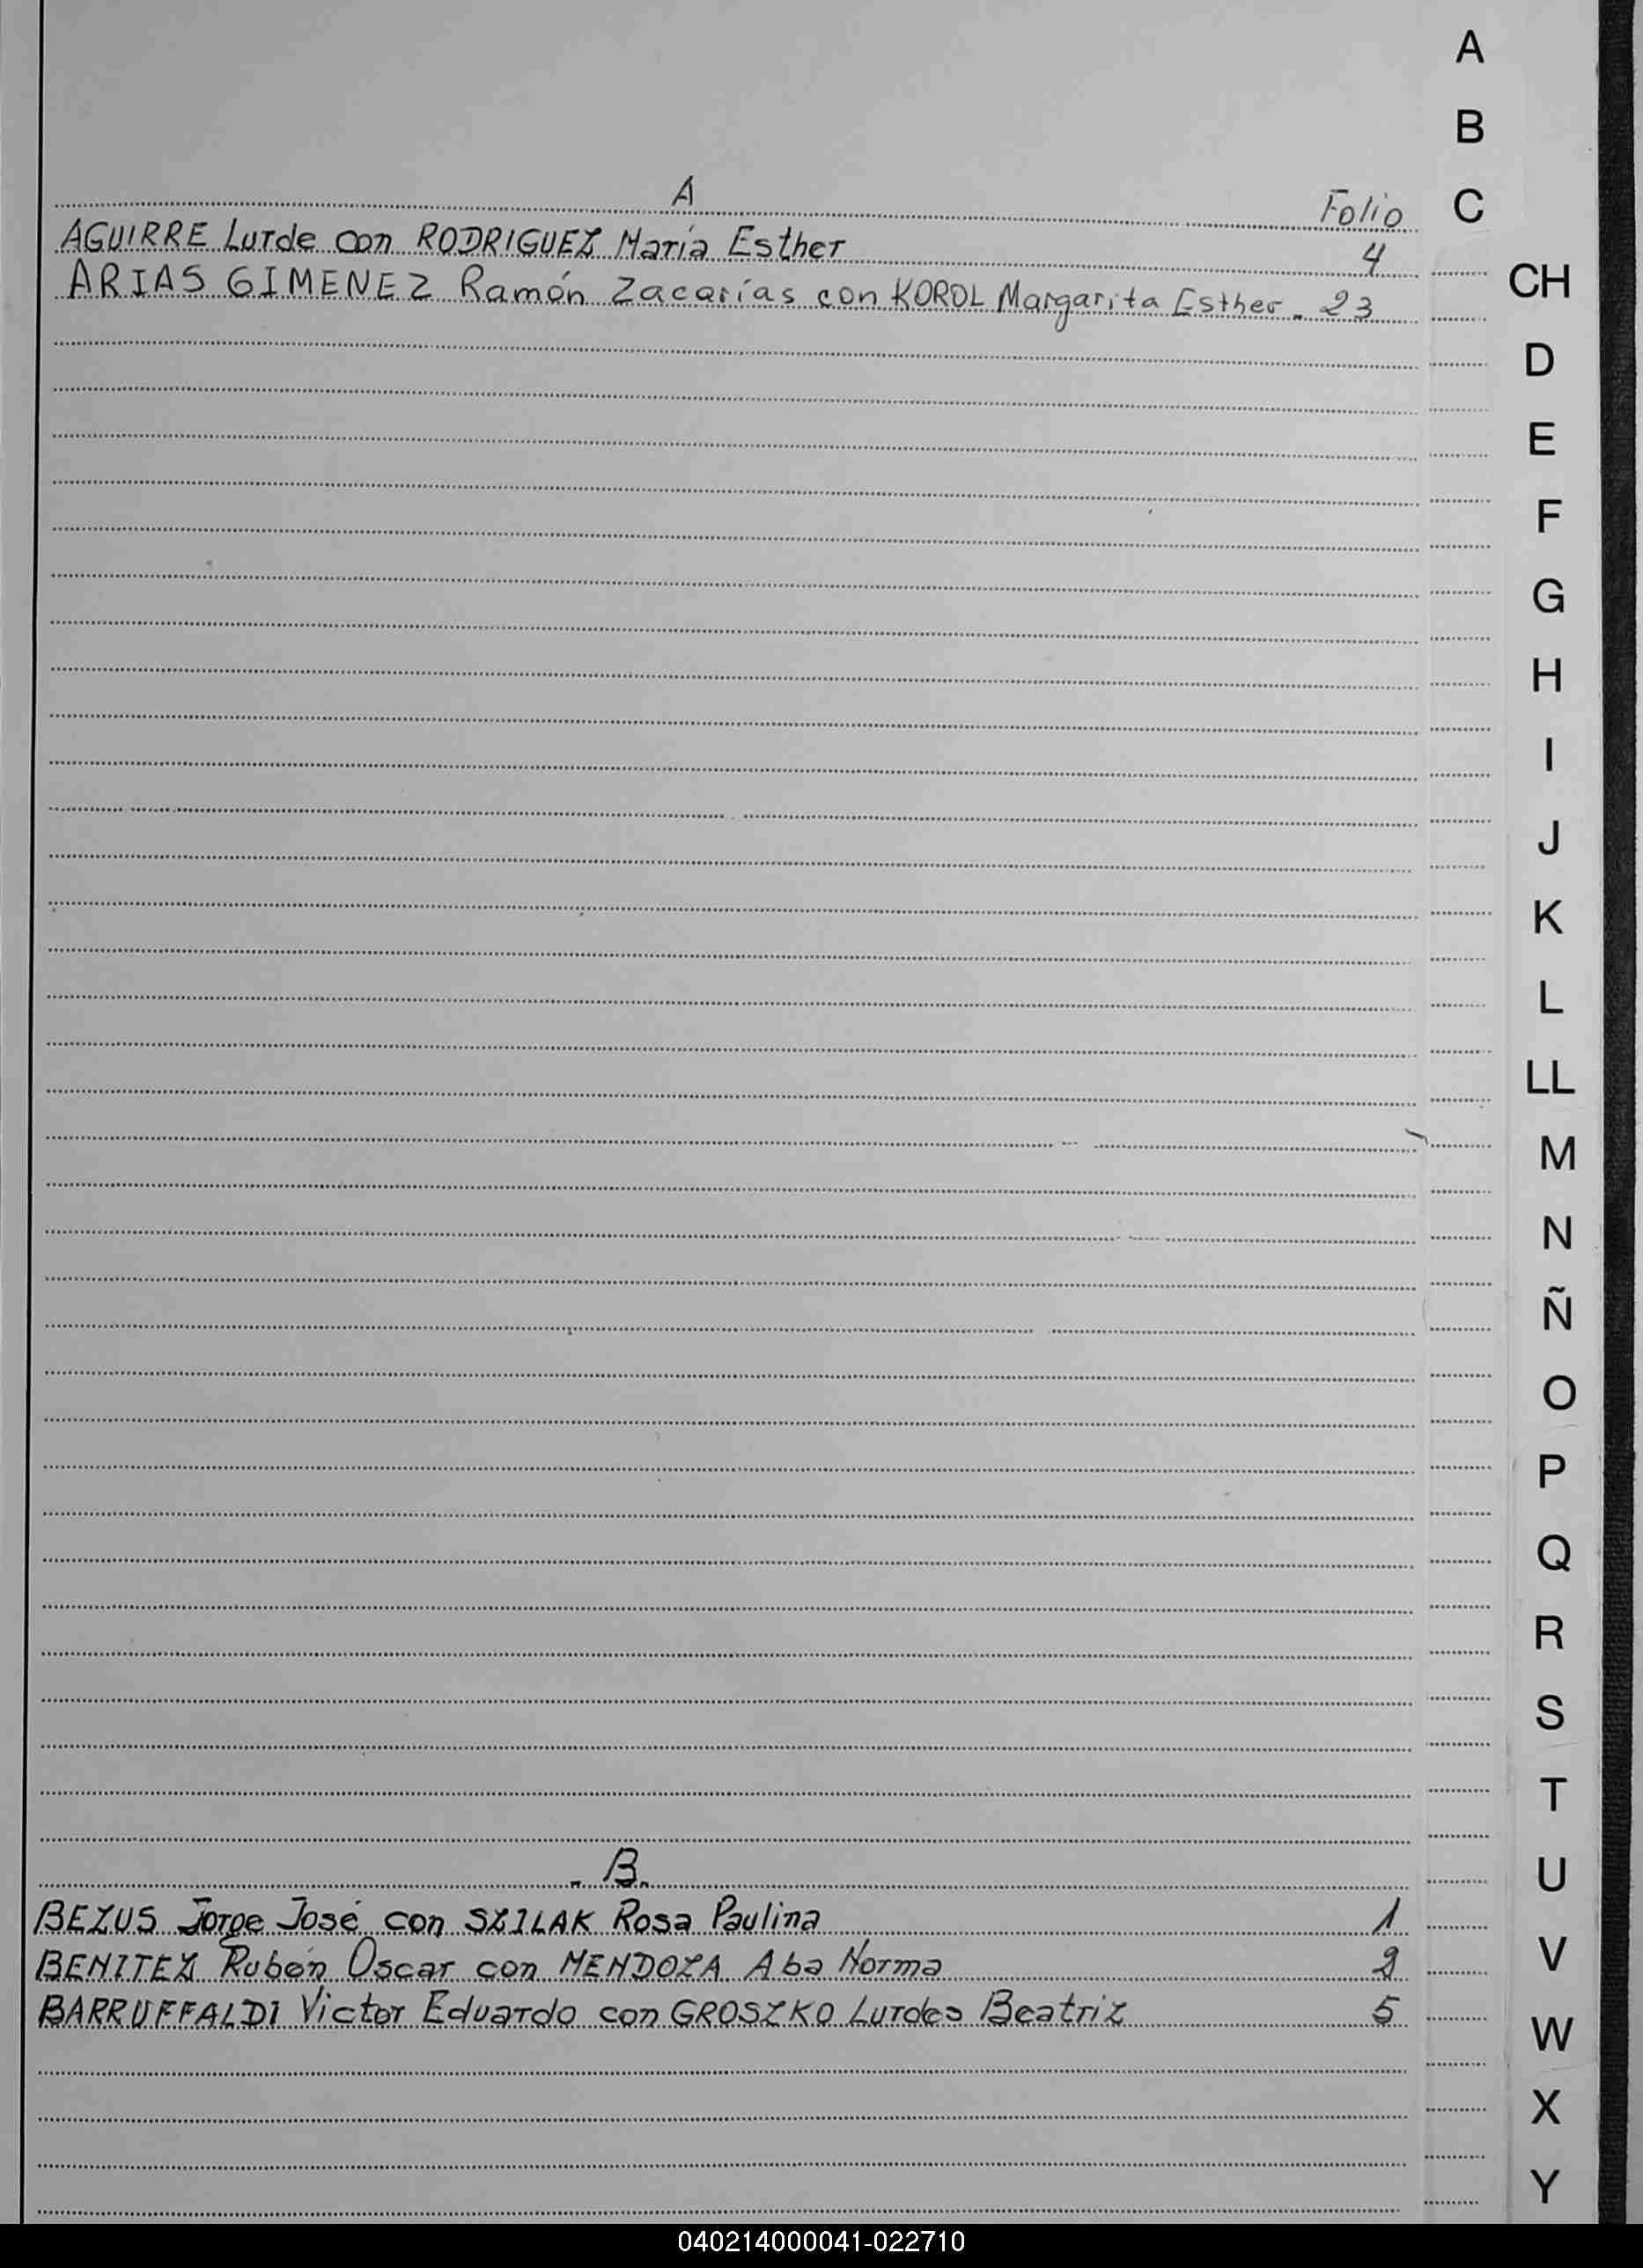 A
B
A
Folio
C
AGUIRRE Lurde con RODRIGUEZ María Esther 4
CH
ARIAS GIMENEZ Ramón Zacarías con KOROL Margarita Esther. 23
D
E
F
G
H
I
J
K
L
LL
M
N
Ñ
O
P
Q
R
S
T
.B.
U
BEZUS Jorge José con SZILAK Rosa Paulina 1
V
BENITEZ Rubén Oscar con MENDOZA Aba Norma 2
BARRUFFALDI Victor Eduardo con GROSZKO Lurdes Beatriz 5
W
X
Y
040214000041-022710